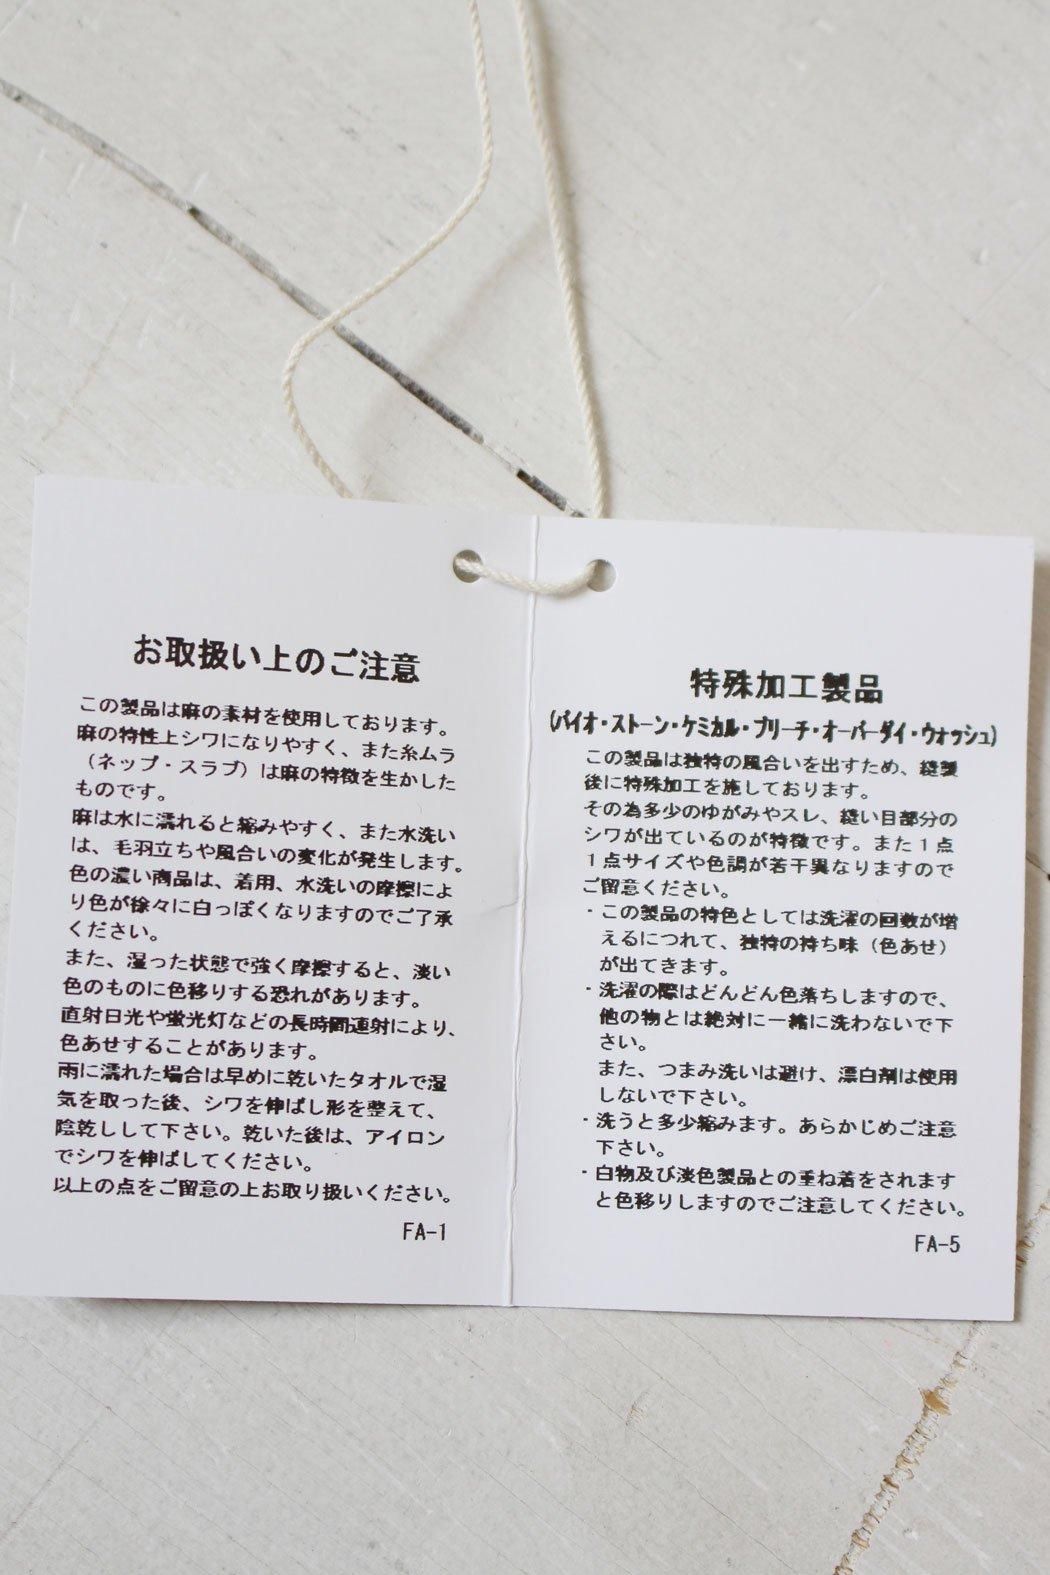 お取扱い上のご注意
この製品は麻の素材を使用しております。
麻の特性上シワになりやすく、また糸ムラ
（ネップ・スラブ）は麻の特徴を生かした
ものです。
麻は水に濡れると縮みやすく、また水洗い
は、毛羽立ちや風合いの変化が発生します。
色の濃い商品は、着用、水洗いの摩擦によ
り色が徐々に白っぽくなりますのでご了承
ください。
また、湿った状態で強く摩擦すると、淡い
色のものに色移りする恐れがあります。
直射日光や蛍光灯などの長時間連射により、
色あせすることがあります。
雨に濡れた場合は早めに乾いたタオルで湿
気を取った後、シワを伸ばし形を整えて、
陰乾しして下さい。乾いた後は、アイロン
でシワを伸ばしてください。
以上の点をご留意の上お取り扱いください。
FA-1
特殊加工製品
(バイオ・ストーン・ケミカル・ブリーチ・オーバーダイ・ウォッシュ)
この製品は独特の風合いを出すため、縫製
後に特殊加工を施しております。
その為多少のゆがみやスレ、縫い目部分の
シワが出ているのが特徴です。また１点
１点サイズや色調が若干異なりますので
ご留意ください。
・この製品の特色としては洗濯の回数が増
えるにつれて、独特の持ち味（色あせ）
が出てきます。
・洗濯の際はどんどん色落ちしますので、
他の物とは絶対に一緒に洗わないで下
さい。
また、つまみ洗いは避け、漂白剤は使用
しないで下さい。
・洗うと多少縮みます。あらかじめご注意
下さい。
・白物及び淡色製品との重ね着をされます
と色移りしますのでご注意してください。
FA-5